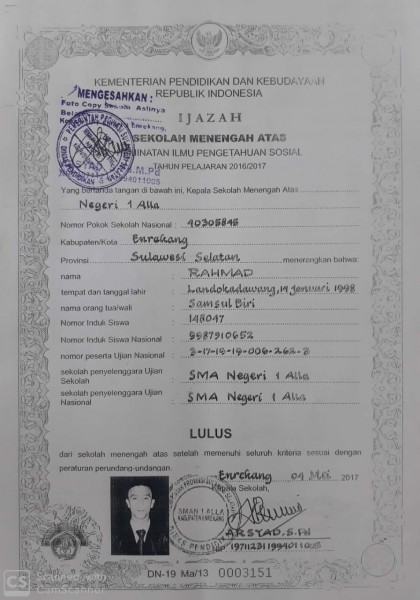 KEMENTERIAN PENDIDIKAN DAN KEBUDAYAAN
REPUBLIK INDONESIA
MENGESAHKAN :
Foto Copy Sesuai Aslinya
IJAZAH
SEKOLAH MENENGAH ATAS
PEMINATAN ILMU PENGETAHUAN SOSIAL
TAHUN PELAJARAN 2016/2017
Yang bertanda tangan di bawah ini, Kepala Sekolah Menengah Atas
Negeri 1 Alla
Nomor Pokok Sekolah Nasional : 40305845
Kabupaten/Kota Enrekang
Provinsi Sulawesi Selatan menerangkan bahwa:
nama : RAHMAD
tempat dan tanggal lahir : Landokadawang, 14 Jenuari 1998
nama orang tua/wali : Samsul Biri
Nomor Induk Siswa : 148047
Nomor Induk Siswa Nasional : 9987910652
nomor peserta Ujian Nasional : 3-17-19-19-006-262-3
sekolah penyelenggara Ujian Sekolah : SMA Negeri 1 Alla
sekolah penyelenggara Ujian Nasional : SMA Negeri 1 Alla
LULUS
dari sekolah menengah atas setelah memenuhi seluruh kriteria sesuai dengan
peraturan perundang-undangan.
Enrekang 04 Mei 2017
Kepala Sekolah,
SMAN 1 ALLA
KABUPATEN ENREKANG
ARSYAD, S.Pd
DN-19 Ma/13 0003151
CS Scanned with
CamScanner